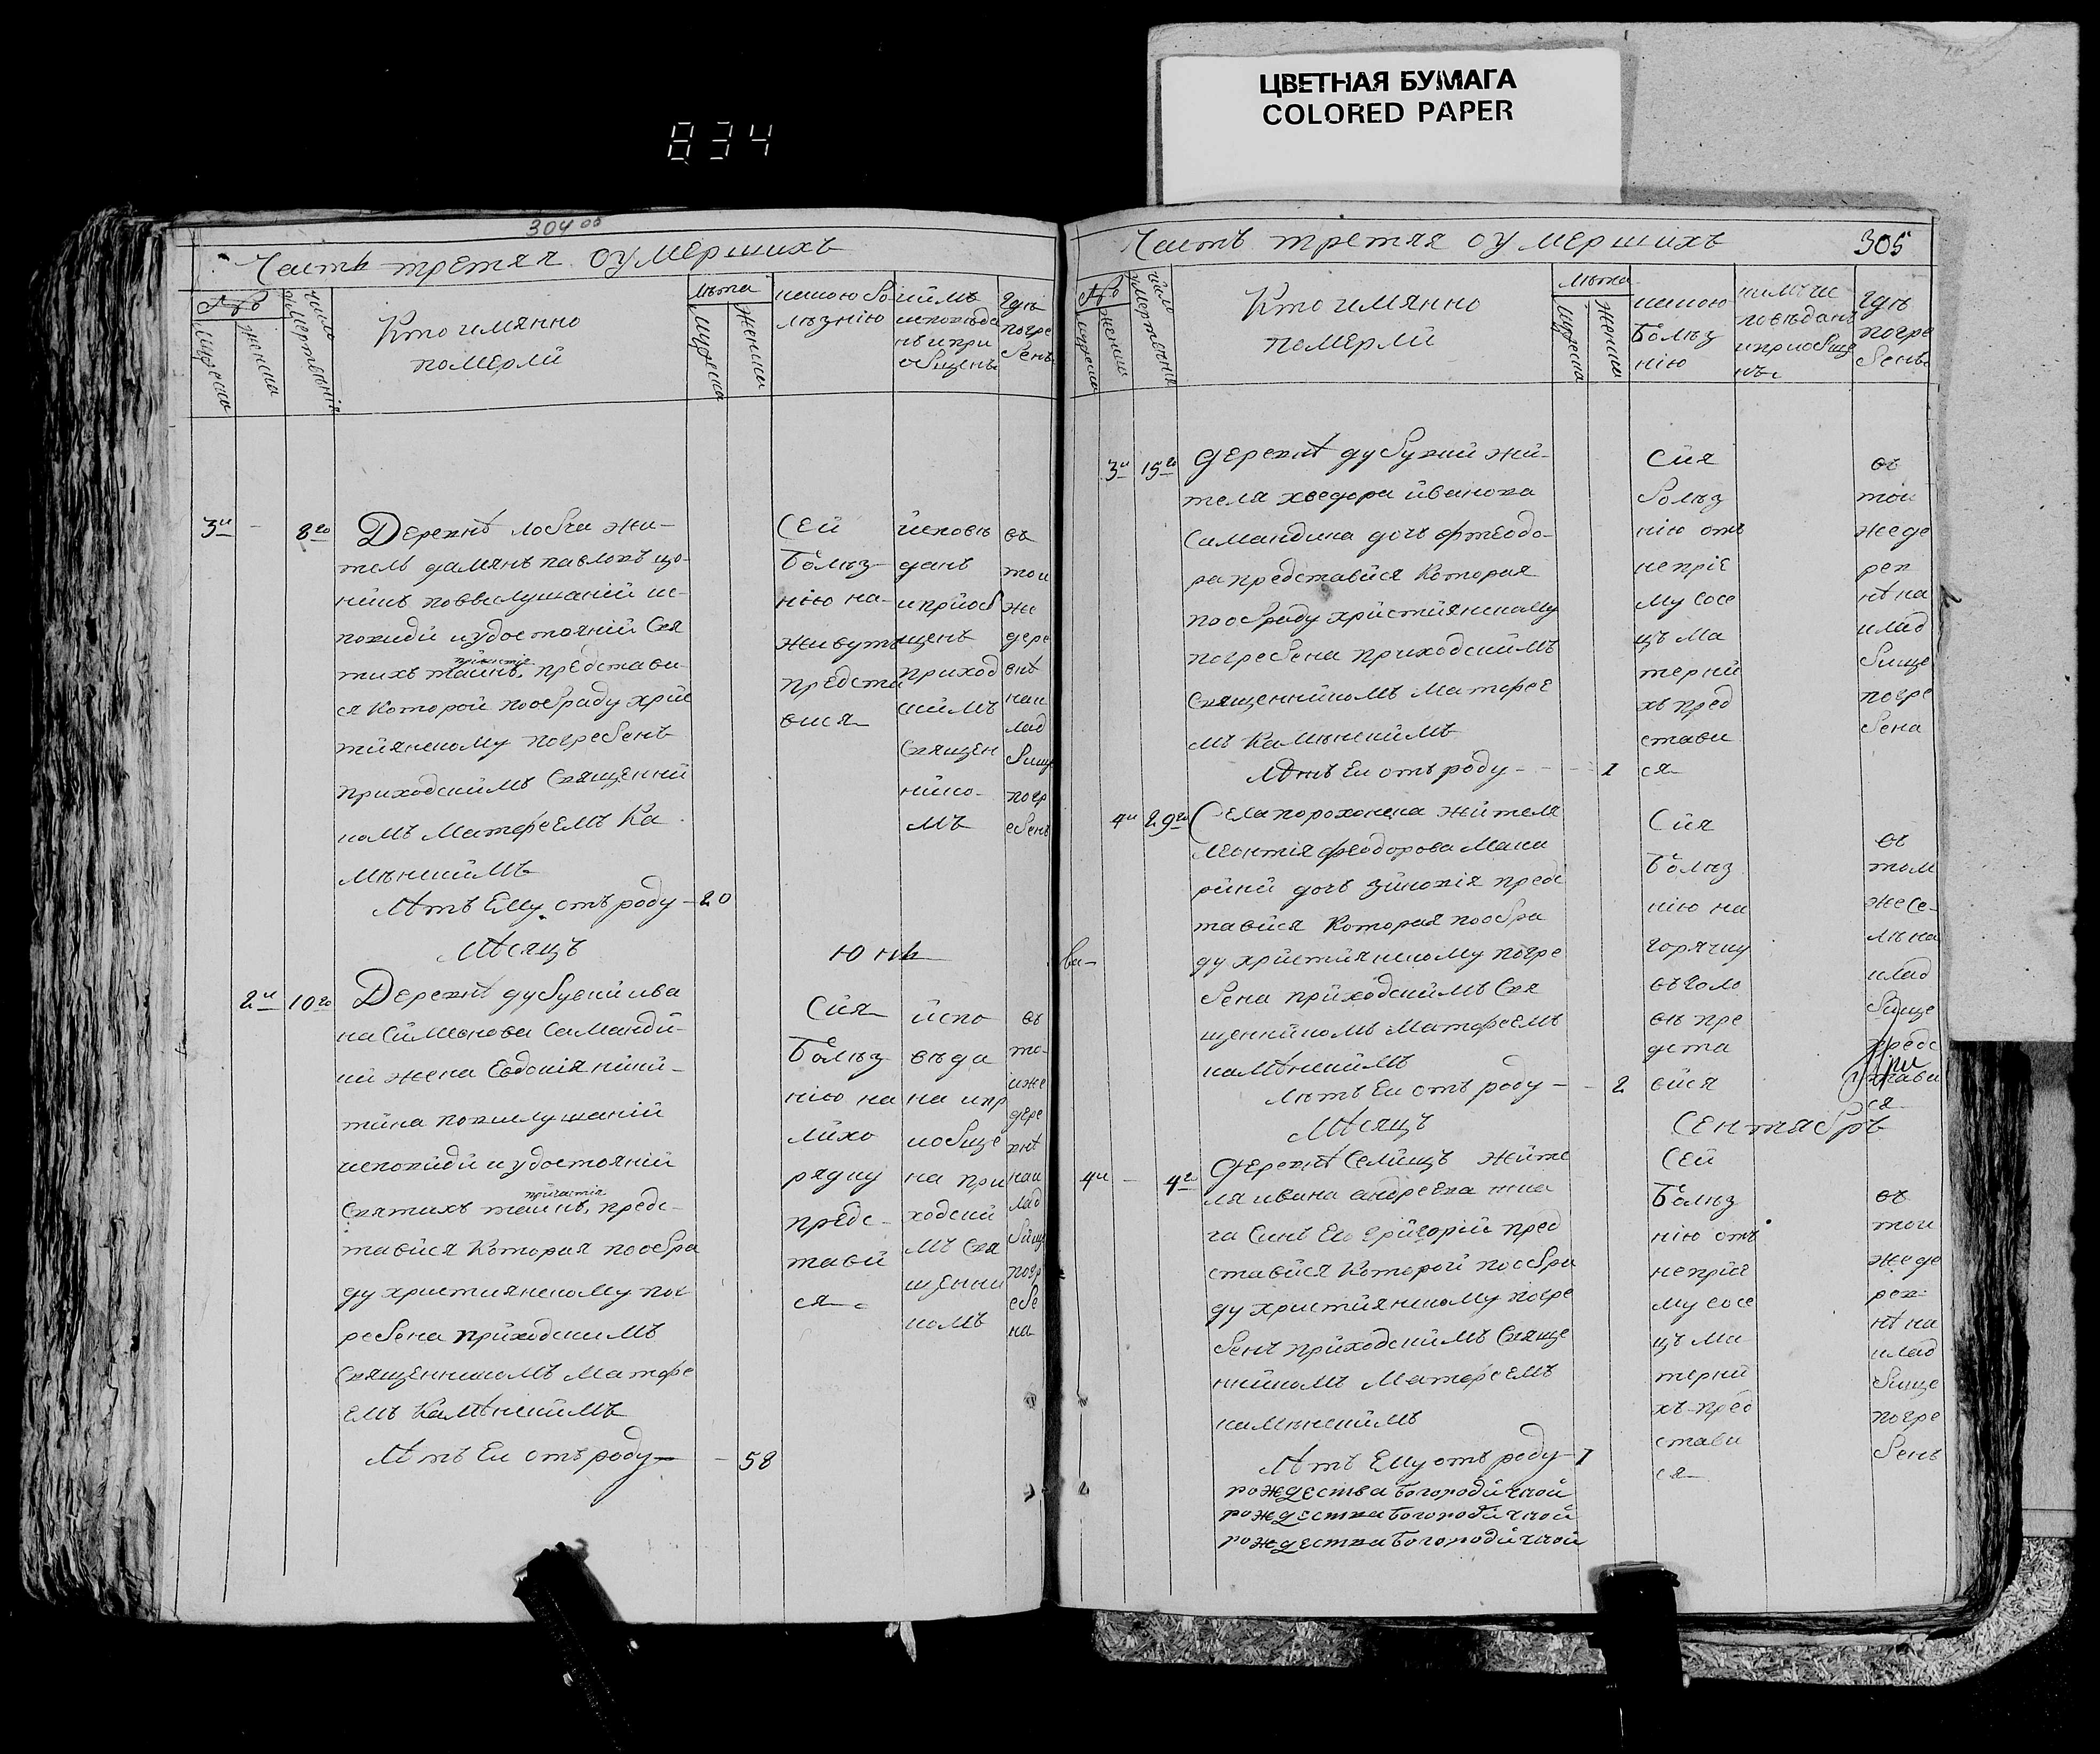 ЦВЕТНАЯ БУМАГА
COLORED PAPER
834
304 об
Часть третяя оумершихъ
№
мужеска
женска
число умертвенія
Кто имянно
померлй
лѣта
мужеска
женска
какою бо
лѣзнію
кймъ
исповѣда
нъ и при
общенъ
гдѣ
погре
бенъ
3й
8го
Деревнѣ лобча жи-
тель дамянъ павловъ
по выслушаній ис-
повиди и удостояній Свя
причастія
тихъ таинъ, представи-
ся Которой по обряду хрис
тйянскому погребенъ
приходскймъ Священнй
комъ Матфеемъ Ка
мѣнскймъ
Лѣтъ Ему отъ роду - 20
Сей
болѣз-
нію на
животъ
предста
вися
йсповѣ
данъ
и прйоб
щенъ
приход
скймъ
Священ
нйко-
мъ
въ
тои
же
дере
внѣ
на к
лад
бище
погр
ебенъ
Мѣсяцъ
Юнь
2й
10го
Деревнѣ дубускй ива
на Сймонова Саманди-
ки жена Евдокія
по вислушаній
исповйди и удостояній
причастія
Святихъ таинъ, предс-
тавйся Которая по обря
ду християнскому пог
ребена прйходскимъ
Священникомъ Матфе
емъ Камѣнскймъ
Лѣтъ Еи отъ роду - 58
Сйя
болѣз
нію на
лйхо
радку
предс-
тавй
ся
йспо
вѣда
на и пр
иобще
на при
ходскй
мъ Свя
щенни
комъ
въ
то-
иже
дере
внѣ
на к
лад
бйще
погр
ебе
на
Часть третяя оумершихъ
305
№
мужеска
женска
число умертвенія
Кто имянно
померлй
лѣта
мужеска
женска
какою
болѣз
нію
кимъ ис
повѣданъ
и приобще
нъ
гдѣ
погре
бенъ
3й
15го
Деревнѣ дубускй жй-
теля хведора йванова
Самандика дочъ фтеодо-
ра представйся Которая
по обряду хрйстйянскому
погребена приходскймъ
Священнйкомъ Матфее
мъ Камѣнскймъ
Лѣтъ Еи отъ роду - 1
Сйя
болѣз
нію отъ
непріе
му сосе
цъ ма
терни
хъ пред
стави
ся
въ
тои
же де
рев
нѣ на
клад
бище
погре
бена
4й
29го
Села порохонска жйтеля
леонтія феодорова Мака
дочъ зйновія предс
тавйся Которая по обря
ду хрйстйянскому погре
бена прйходскймъ Свя
щеннйкомъ Матфеемъ
камѣнскймъ
Лѣтъ Еи отъ роду - 2
Сйя
болѣз
нію на
горячку
въ голо
вѣ пре
дста
вйся
въ
том
же се-
лѣ на
клад
бище
предс
тави
ся
Мѣсяцъ
Сентябръ
4й
4го
Деревнѣ Селищъ жйте
ля ивана андреева тка
ча Синъ Ео грйгорій пред
ставйся Которой по обря
ду христйянскому погре
бенъ прйходскймъ Свяще
ннйкомъ Матфеемъ
камѣнскймъ
Лѣтъ Ему отъ роду - 1
Сей
болѣз
нію отъ
непрйе
му сосе
цъ ма
терни
хъ пред
стави
ся
въ
тои
же де
рев
нѣ на
клад
бище
погре
бенъ
рождества богородйчной
рождества богородйчной
рождества богородйчной